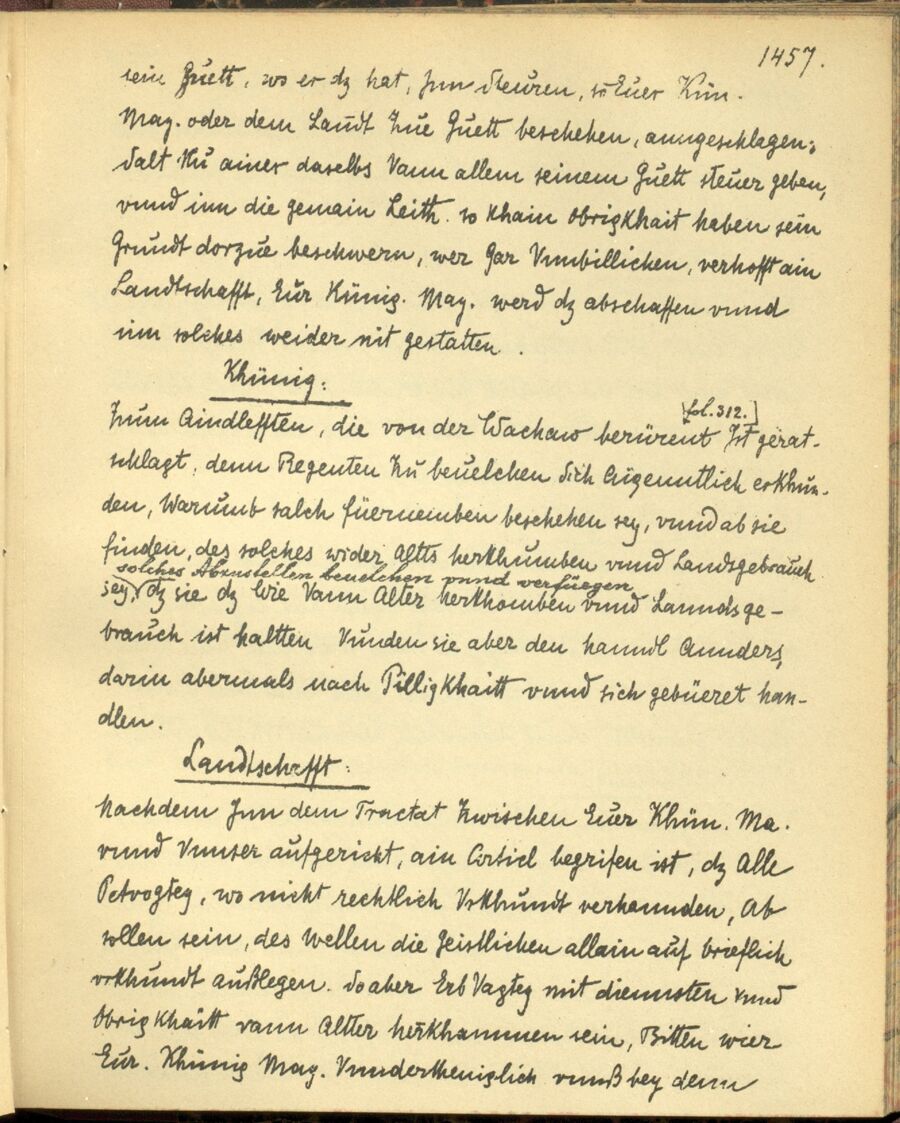 1457.
sein Guett, wo er dz hat, Jnn Steuren, so Euer Kün.
May. oder dem Landt Zue Guett beschehen, anngeschlagen;
Salt Nu ainer daselbs Vann allem seinem Guett steuer geben,
vnnd inn die gemain Leith. so khain Obrigkhait haben sein
Grundt dorzue beschwern, wer Gar Vnnbillichen, verhofft ain
Landtschafft, Eur Künig. May. werd dz abschaffen vnnd
inn solches weider nit gestatten.
Khünig:
[fol. 312.]
Zum Aindlefften, die von der Wachaw berürent Ist gerat-
schlagt, denn Regenten Zu beuelchen Sich Aigenntlich erkhun-
den, Warumb salch füernemben beschehen sey, vnnd ab sie
finden, des solches wider Altts herkhumben vnnd Landsgebrauch
solches Abzustellen beuelchen vnnd verfüegen
sey, dz sie dz Wie Vann Alter herkhomben vnnd Lanndsge-
brauch ist haltten Vunden sie aber den hanndl Annders,
darin abermals nach Pilligkhaitt vnnd sich gebüeret han-
dlen.
Landtschafft:
Nachdem Jnn dem Tractat Zwischen Euer Khün. Ma.
vnnd Vnnser aufgericht, ain Articl begrifen ist, dz Alle
Petvogtey, wo nicht rechtlich Vrkhundt verhannden, Ab
sollen sein, des Wellen die Geistlichen allain auf brieflich
vrkhundt außlegen. So aber Erb Vagtey mit diennsten vnnd
Obrigkhaitt vann Altter herkhammen sein, Bitten wier
Eur. Khünig May. Vnndertheniglich vnnß bey denn